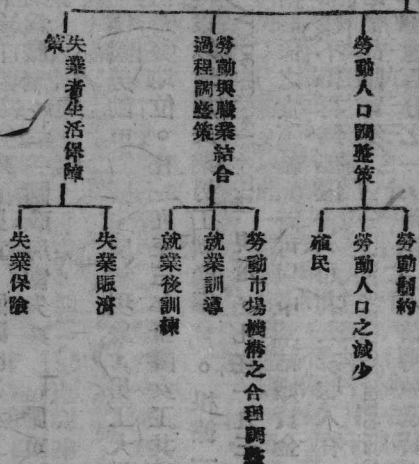 勞動人口調整策
勞動制約
勞動人口之減少
殖民
勞動與職業結合
過程調整策
勞動市場機構之合理調整
就業訓導
就業後訓練
失業者生活保障
策
失業賑濟
失業保險